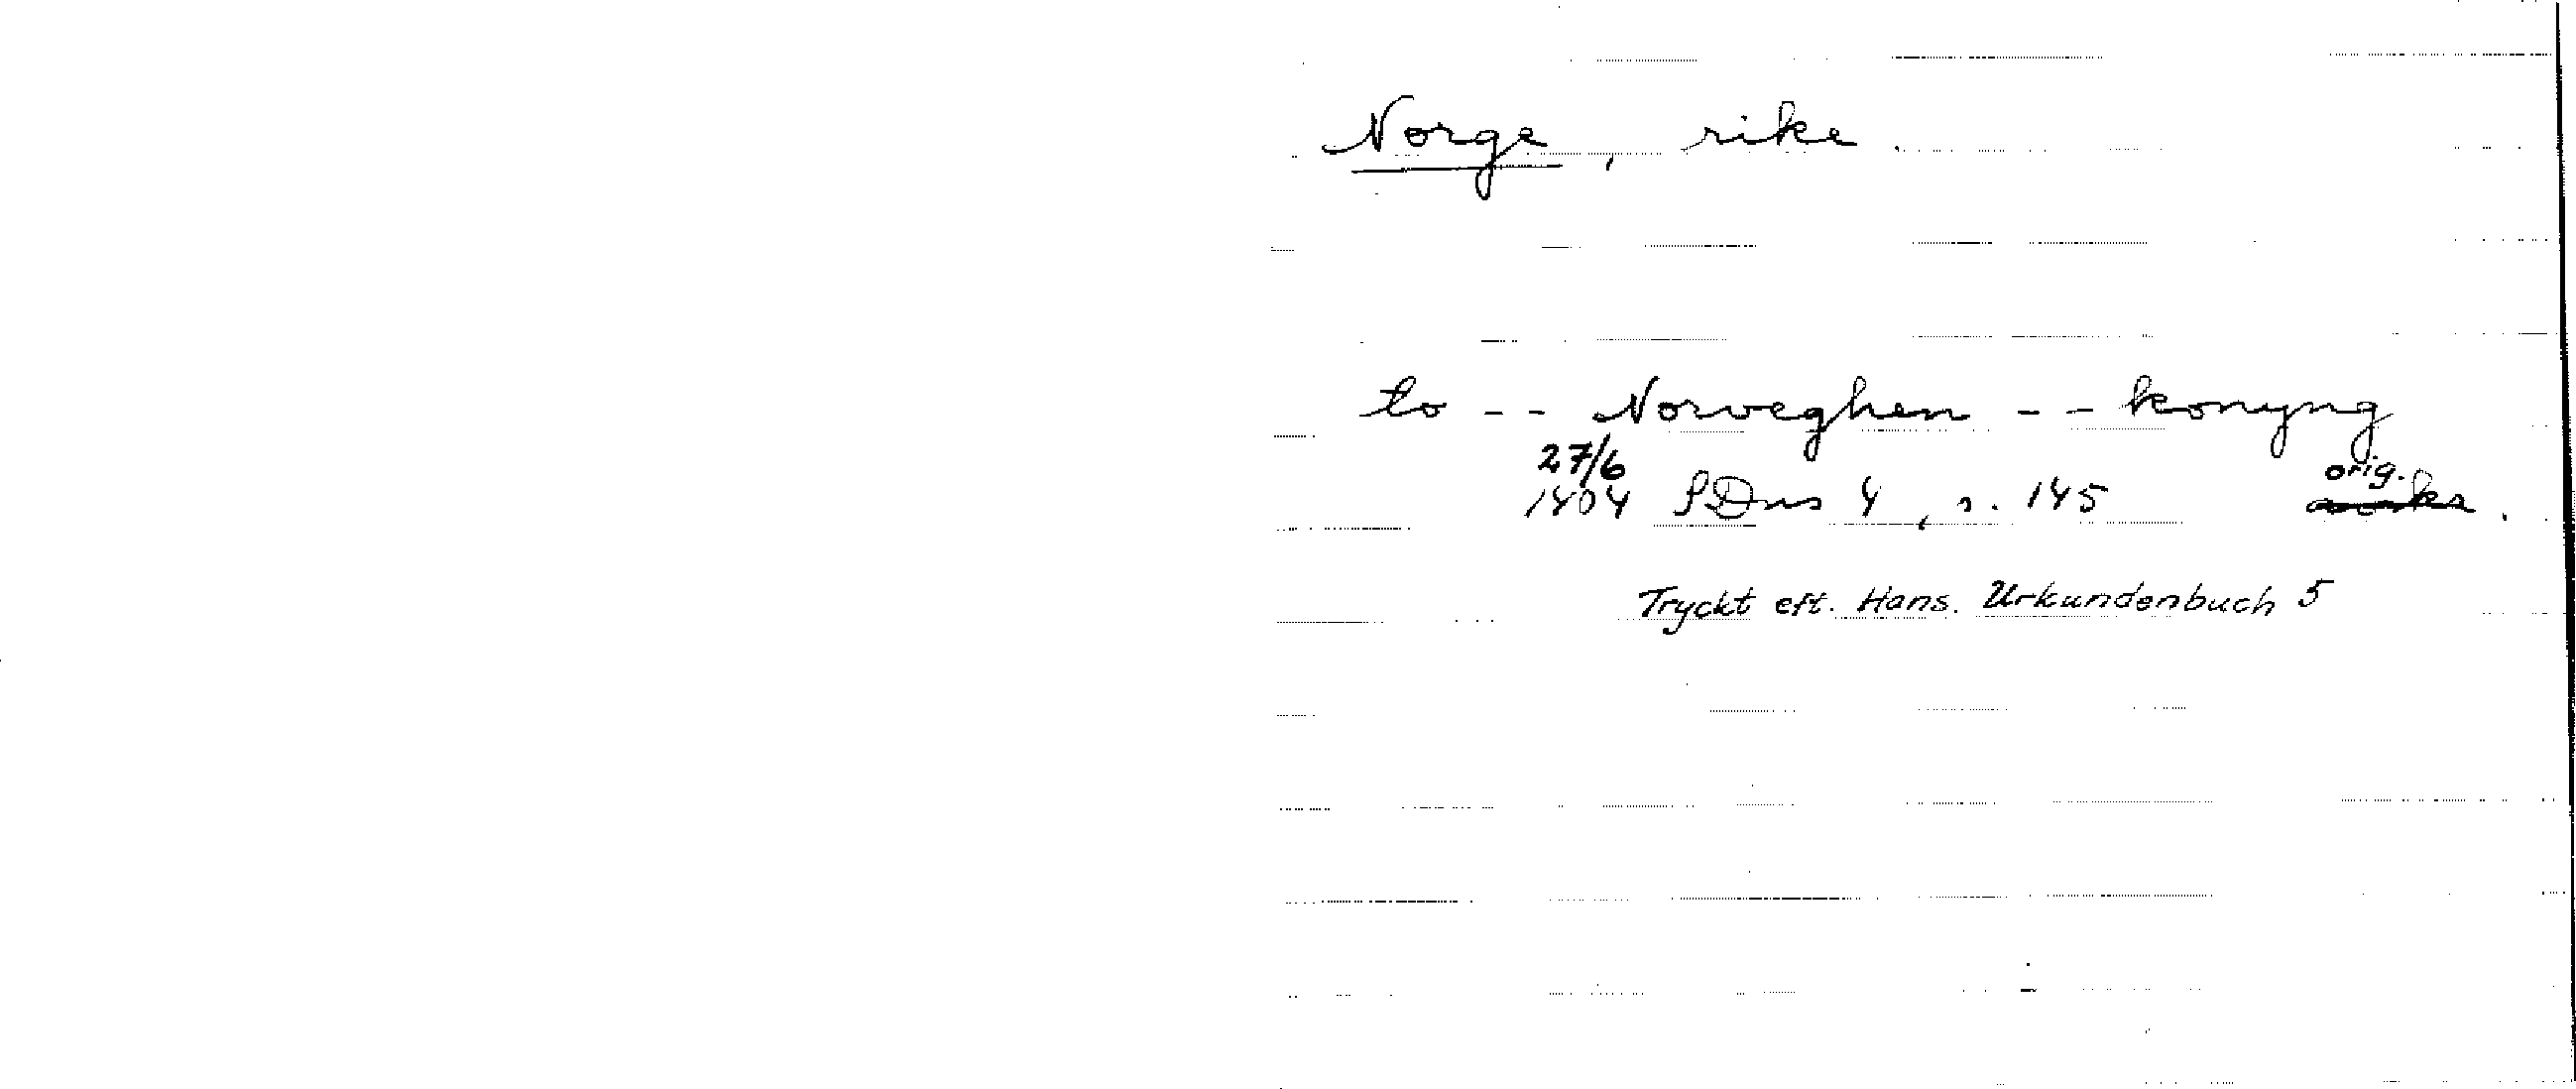 Norge, rike.
to -- Norweghen -- konyng
27/6 orig.
1404 SDns 4, s. 145
Tryckt eft. Hans. Urkundenbuch 5